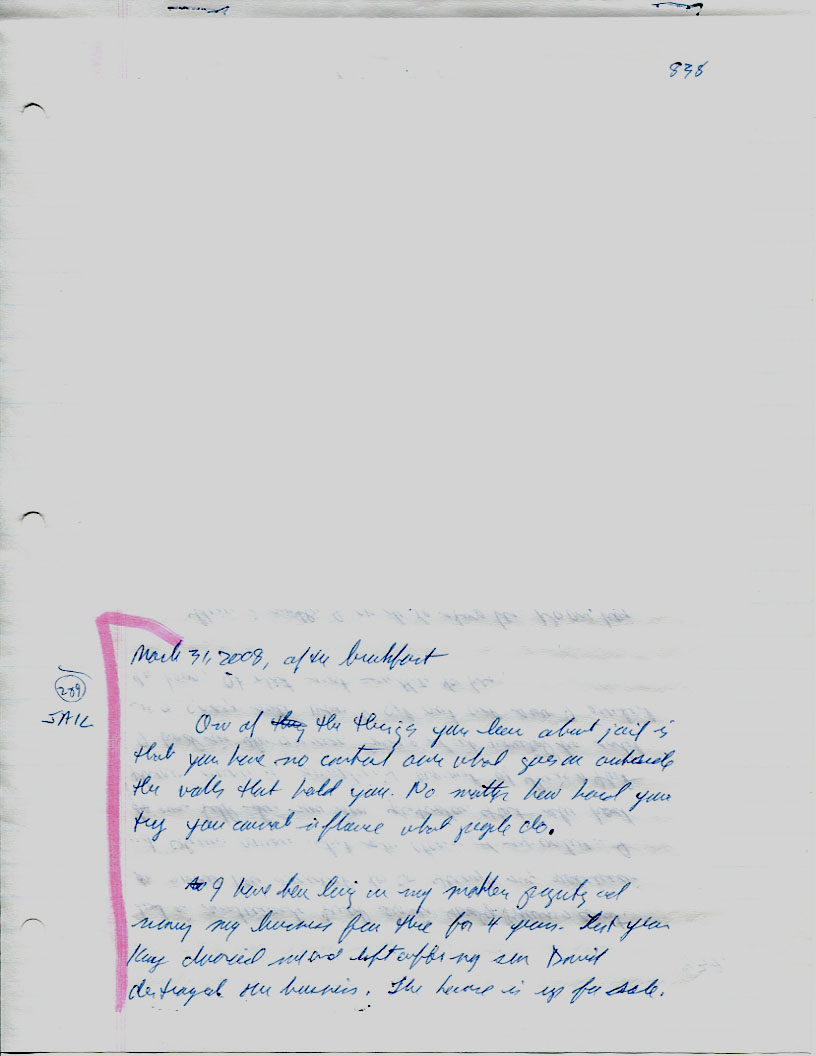 838
March 31, 2008, after breakfast
289
JAIL
One of the things you learn about jail is
that you have no control over what goes on outside
the walls that hold you. No matter how hard you
try you cannot influence what people do.
I have been living on my mothers property and
running my business from there for 4 years. Last year
Kay divorced me and left after my son David
destroyed our business. The house is up for sale.